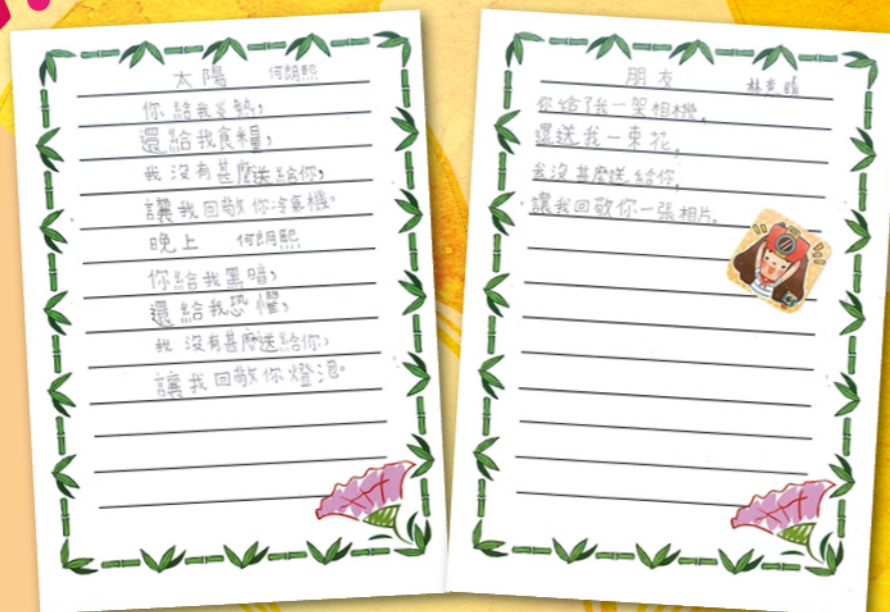 太陽 何朗熙
你給我炎熱，
還給我食糧，
我沒有甚麼送給你，
讓我回敬你冷氣機。
晚上 何朗熙
你給我黑暗，
還給我恐懼，
我沒有甚麼送給你，
讓我回敬你燈泡。
朋友 林 晴
你給了我一架相機，
還送我一束花，
我沒甚麼送給你，
讓我回敬你一張相片。